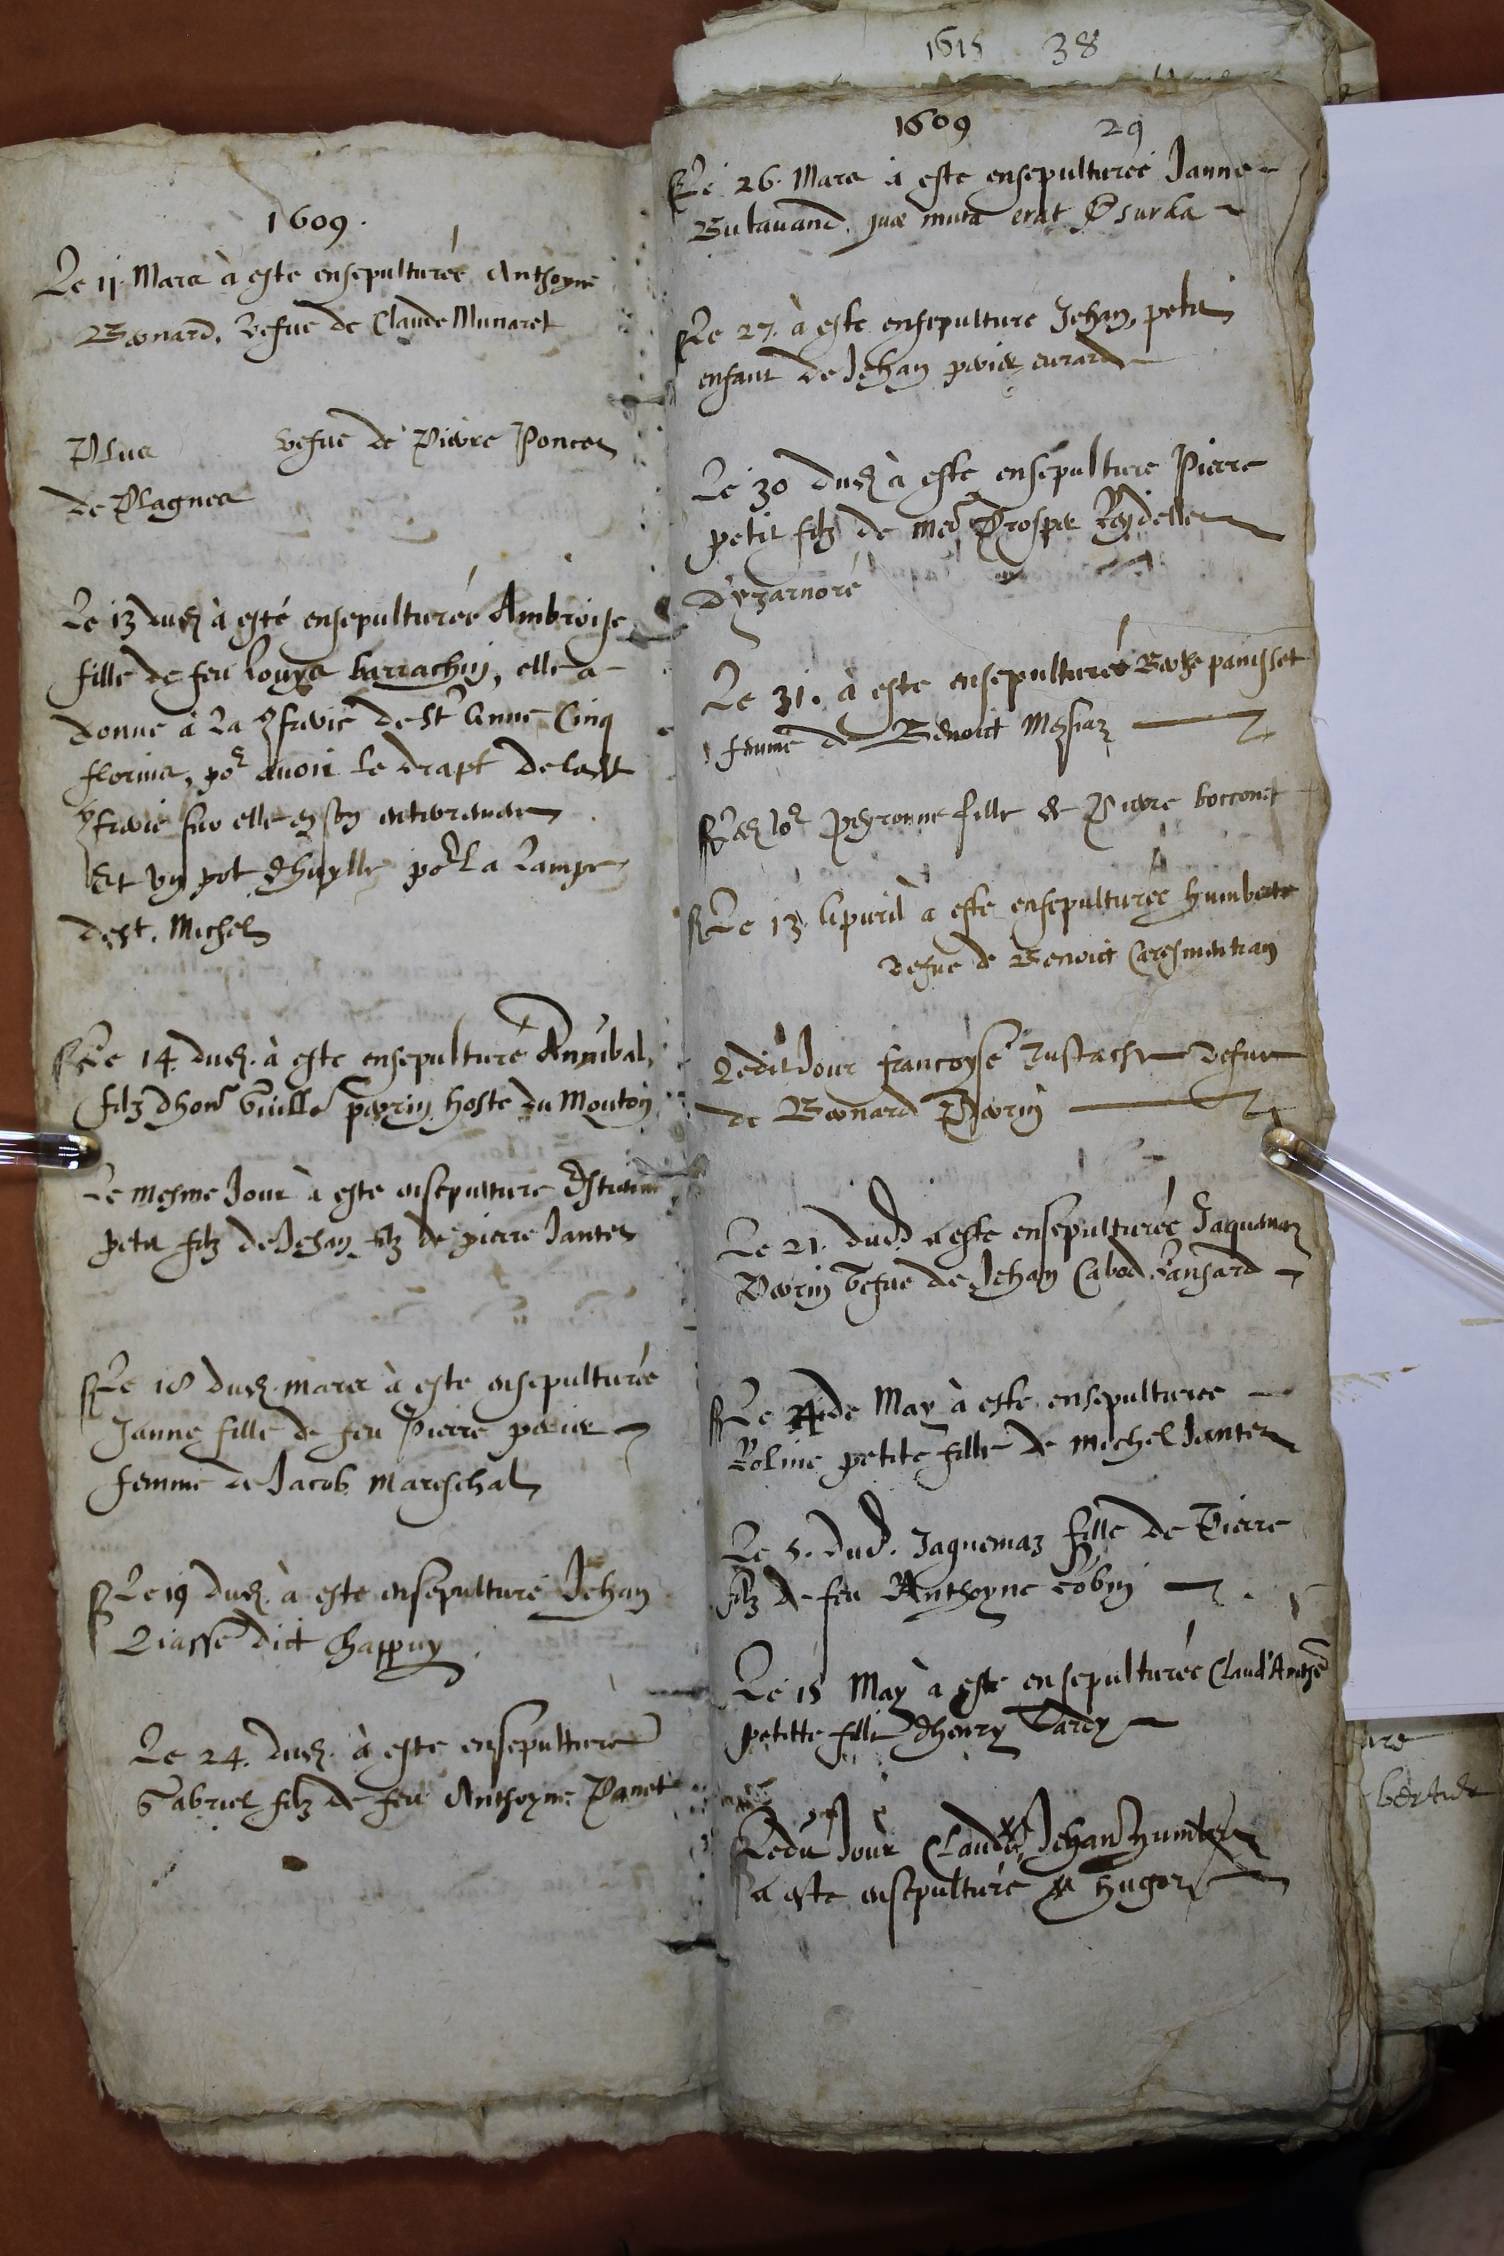 1609.
Le 11. Mars à este ensepulturée Anthoyne
Bernard, vefue de Claude Munaret
Plus vefue de Pierre Poncet
de Plagnes
Le 13 dud. à esté ensepulturée Ambroise
fille de feu Louys barrachin, elle a
donne à la 9frerie de St Anne Cinq
florins, por avoir le drapt de ladt
9frerie sur elle en son enterremen
Et un pot dhuylle por la lampe
de St. Michel
Le 14. dud. à este ensepulturé Annibal,
filz dhonr Guille perrin hoste du Mouton
Le mesme Jour à este ensepulture
petit filz de Jehan filz de pierre Janter
Le 18 dud. mars à este ensepulturée
Janne fille de feu Pierre perier
femme de Jacob Mareschal
Le 19 dud. à este ensepulturé Jehan
Liasse dict Chappuy
Le 24. dud. à este ensepulturé
Gabriel filz de feu Anthoyne Panet
1615 38
1609 29
Le 26. Mars à este ensepulturée Janne
Butavand, quæ muta erat & surda
Le 27. à este ensepulturé Jehan, petit
enfant de Jehan perier evrard
Le 30 dud. à este ensepulture Pierre
petit filz de me Prosper Reydellet
d'yzarnore
Le 31. à este ensepulturée Berthe panisset
femme de Benoict Meyssiaz
Led. Jor Peyronne fille de Pierre bocconet
Le 13. Apvril à este ensepulturée humberte
vefue de Benoict Caresmentran
Ledit Jour francoyse vefue
de Bernard Perrin
Le 21. dud. a este ensepulturée Jaquemaz
Perrin vefue de Jehan Cabod Lansard
Le 4 de May à este ensepulturee
Roline petite fille de michel Janter
Le 5. dud. Jaquemaz fille de Pierre
filz de feu Anthoyne robin
Le 15 May à este ensepulturée Claud'Anthe
petitte fille dhenry Tardy
Ledit Jour Claude Jehan humbert
a este ensepulturé hugon